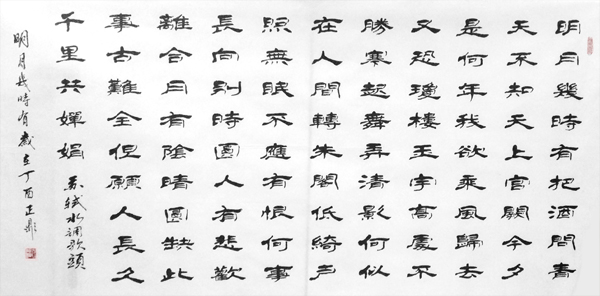 明月幾時有把酒問青
天不知天上宮闕今夕
是何年我欲乘風歸去
又恐瓊樓玉宇高處不
勝寒起舞弄清影何似
在人間轉朱閣低綺户
照無眠不應有恨何事
長向別時圓人有悲歡
離合月有陰晴圓缺此
事古難全但願人長久
千里共嬋娟 蘇軾水調歌頭
明月幾時有 歲在丁酉